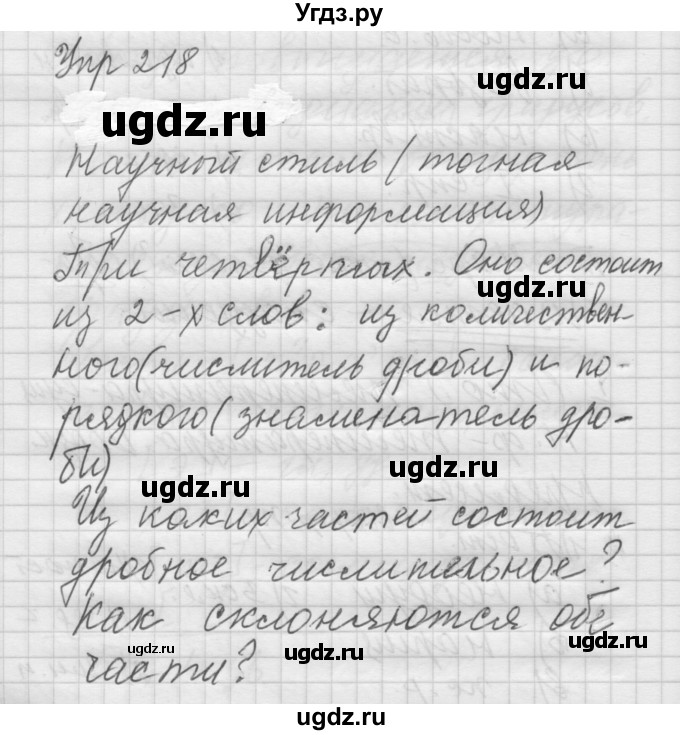 Угдз.ру
Упр 218
ugdz.ru
ugdz.ru
Научный стиль (точная
научная информация)
Три четвёртых. Оно состоит
ugdz.ru
из 2-х слов: из количествен-
ного (числитель дроби) и по-
рядкого (знаменатель дро-
би)
ugdz.ru
ugdz.ru
Из каких частей состоит
дробное числительное?
Как склоняются обе
ugdz.ru
ugdz.ru
ugdz.ru
части?
ugdz.ru